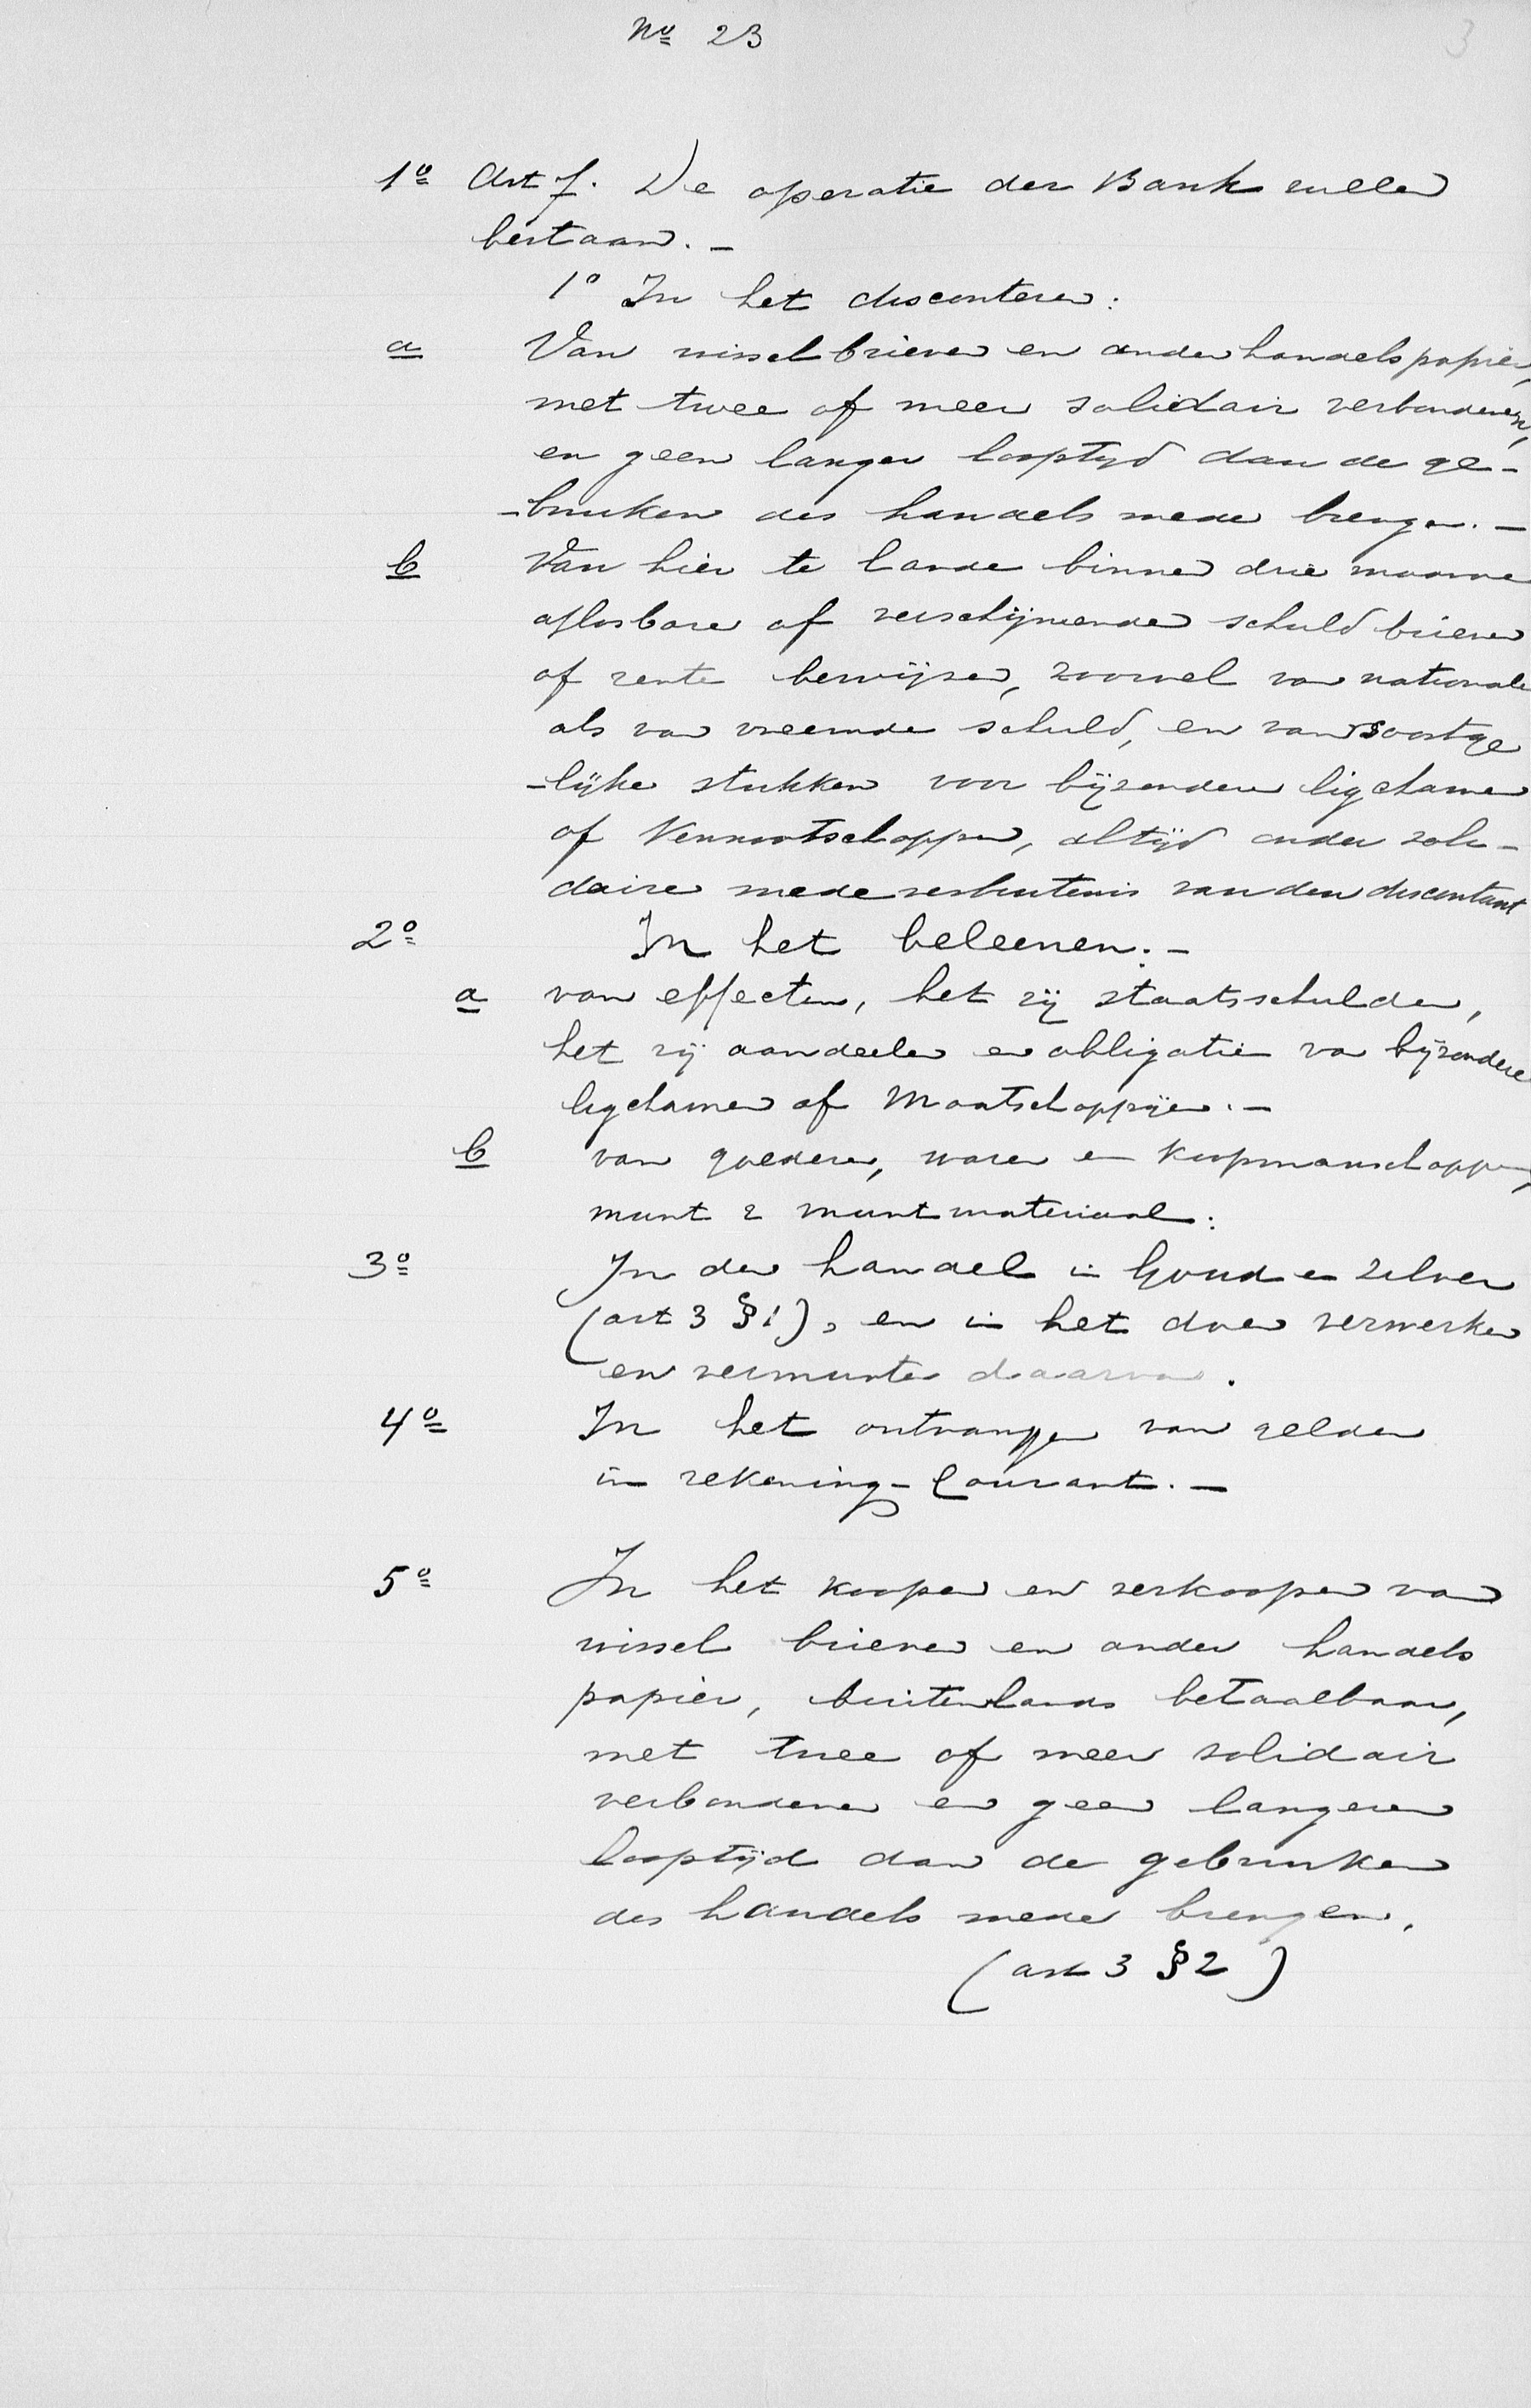 No 23
3
1o Art 7. De operatie der Bank zullen
bestaan. -
1o In het disconteren:
a Van wisselbrieven en ander handelspapier,
met twee of meer solidair verbondenen,
en geen langer looptyd dan de ge-
-bruiken des handels mede brengen. -
b Van hier te lande binnen drie maanden
aflosbare of verschijnende schuld brieven
of rente bewijzen, zoowel van nationale
als van vreemde schuld, en van soortge
-lijke stukken voor bijzondere ligchamen
of Vennootschappen, altijd onder soli-
daire medeverbintenis van den discontant
2o In het beleenen: -
a van effecten, het zij staatsschulden,
het zij aandeelen en obligatien van bijzondere
ligchamen of Maatschappijen. -
b van goederen, waren en koopmanschappen,
munt & muntmateriaal:
3o In den handel in Goud en Zilver
(art 3 § 1), en in het doen verwerken
en vermunten daarvan.
4o In het ontvangen van gelden
in rekening-Courant. -
5o In het koopen en verkoopen van
wissel brieven en ander handels
papier, buitenlands betaalbaar,
met twee of meer solidair
verbondenen en geen langeren
looptijd dan de gebruiken
des handels mede brengen.
(art 3 § 2)